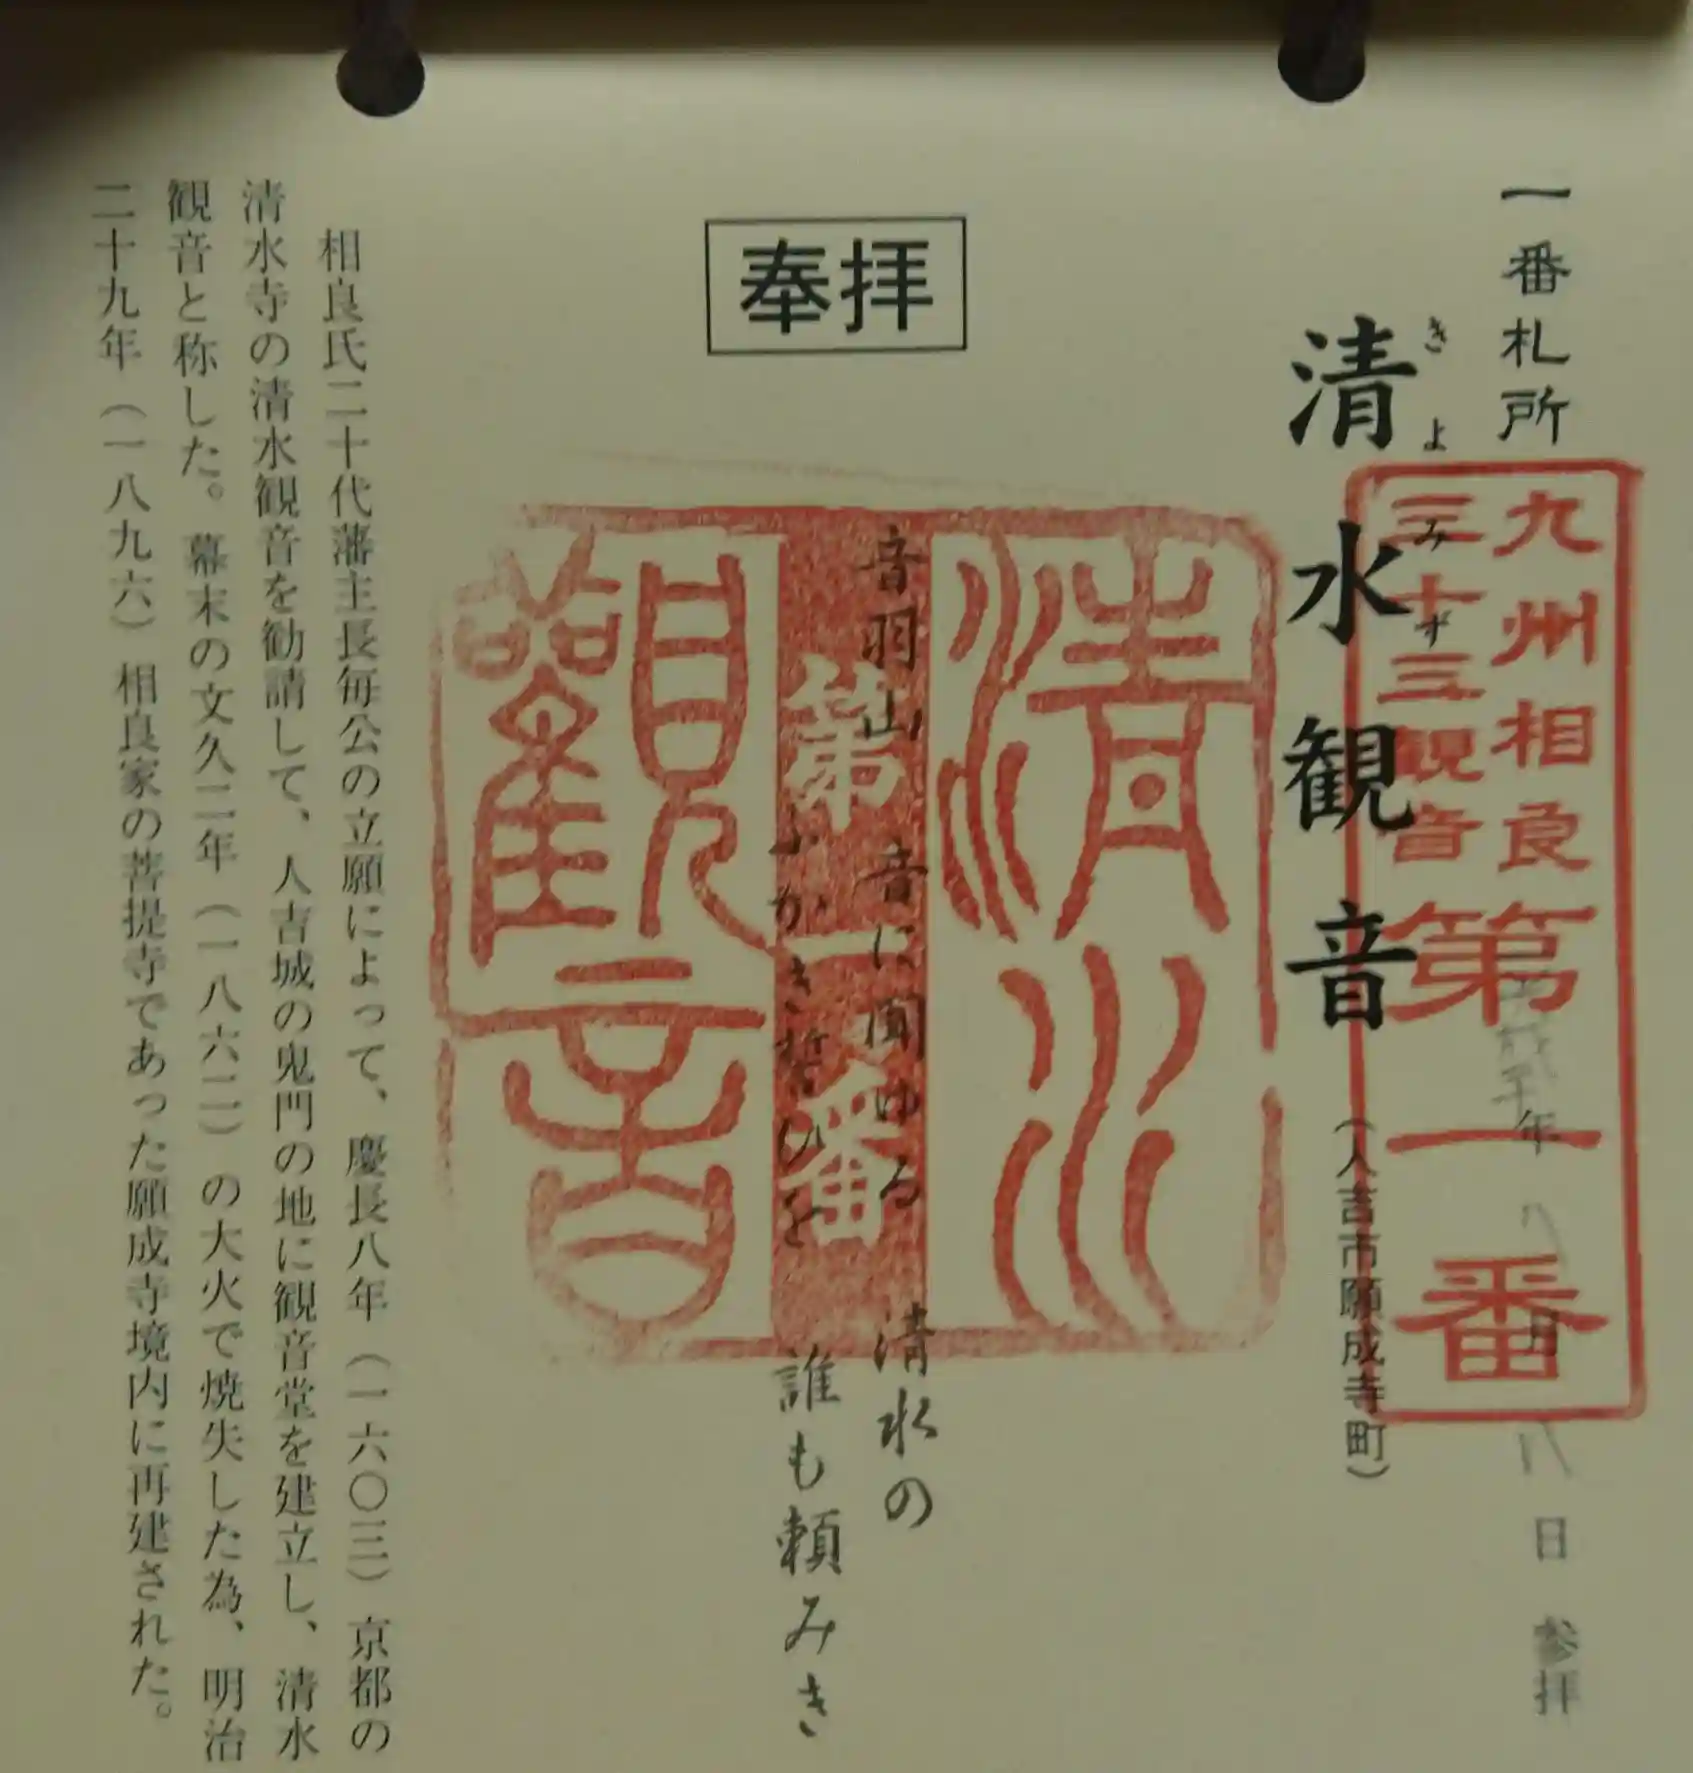 一番札所
年 月 日 参拝
九州相良
三十三観音
第一番
きよみず
清水観音
(人吉市願成寺町)
奉拝
清水
第一番
觀音
音羽山 音に聞ゆる 清水の
ふかき誓ひを 誰も頼みき
相良氏二十代藩主長毎公の立願によって、慶長八年(一六〇三)京都の
清水寺の清水観音を勧請して、人吉城の鬼門の地に観音堂を建立し、清水
観音と称した。幕末の文久二年(一八六二)の大火で焼失した為、明治
二十九年(一八九六)相良家の菩提寺であった願成寺境内に再建された。